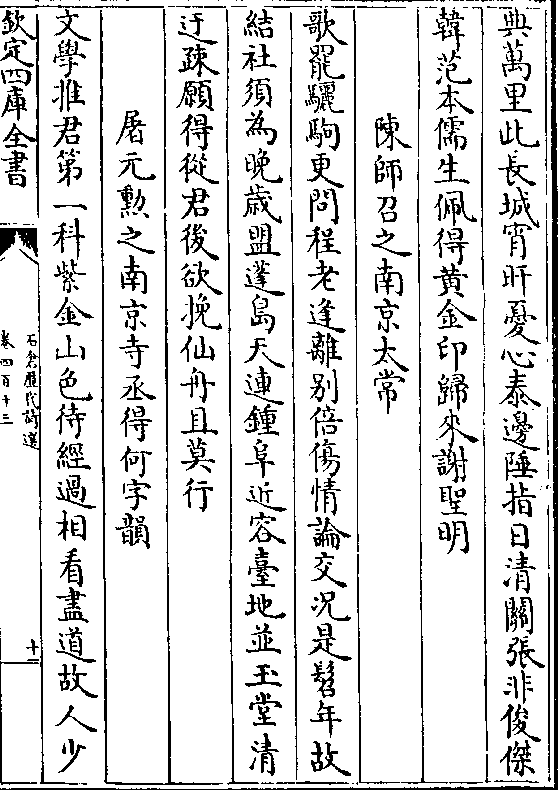 典萬里此長城宵旰憂心泰邊陲指日清關張非俊傑
韓范本儒生佩得黄金印歸來謝聖明
陳師召之南京太常
歌罷驪駒更問程老逢離别倍傷情論交况是髫年故
結社須為晩歳盟蓬島天連鍾阜近容臺地並玉堂清
迂疎願得從君後欲挽仙舟且莫行
屠元勲之南京寺丞得何字韻
文學推君第一科紫金山色待經過相看盡道故人少
欽定四庫全書
石倉歴代詩選
卷四百十三
十一